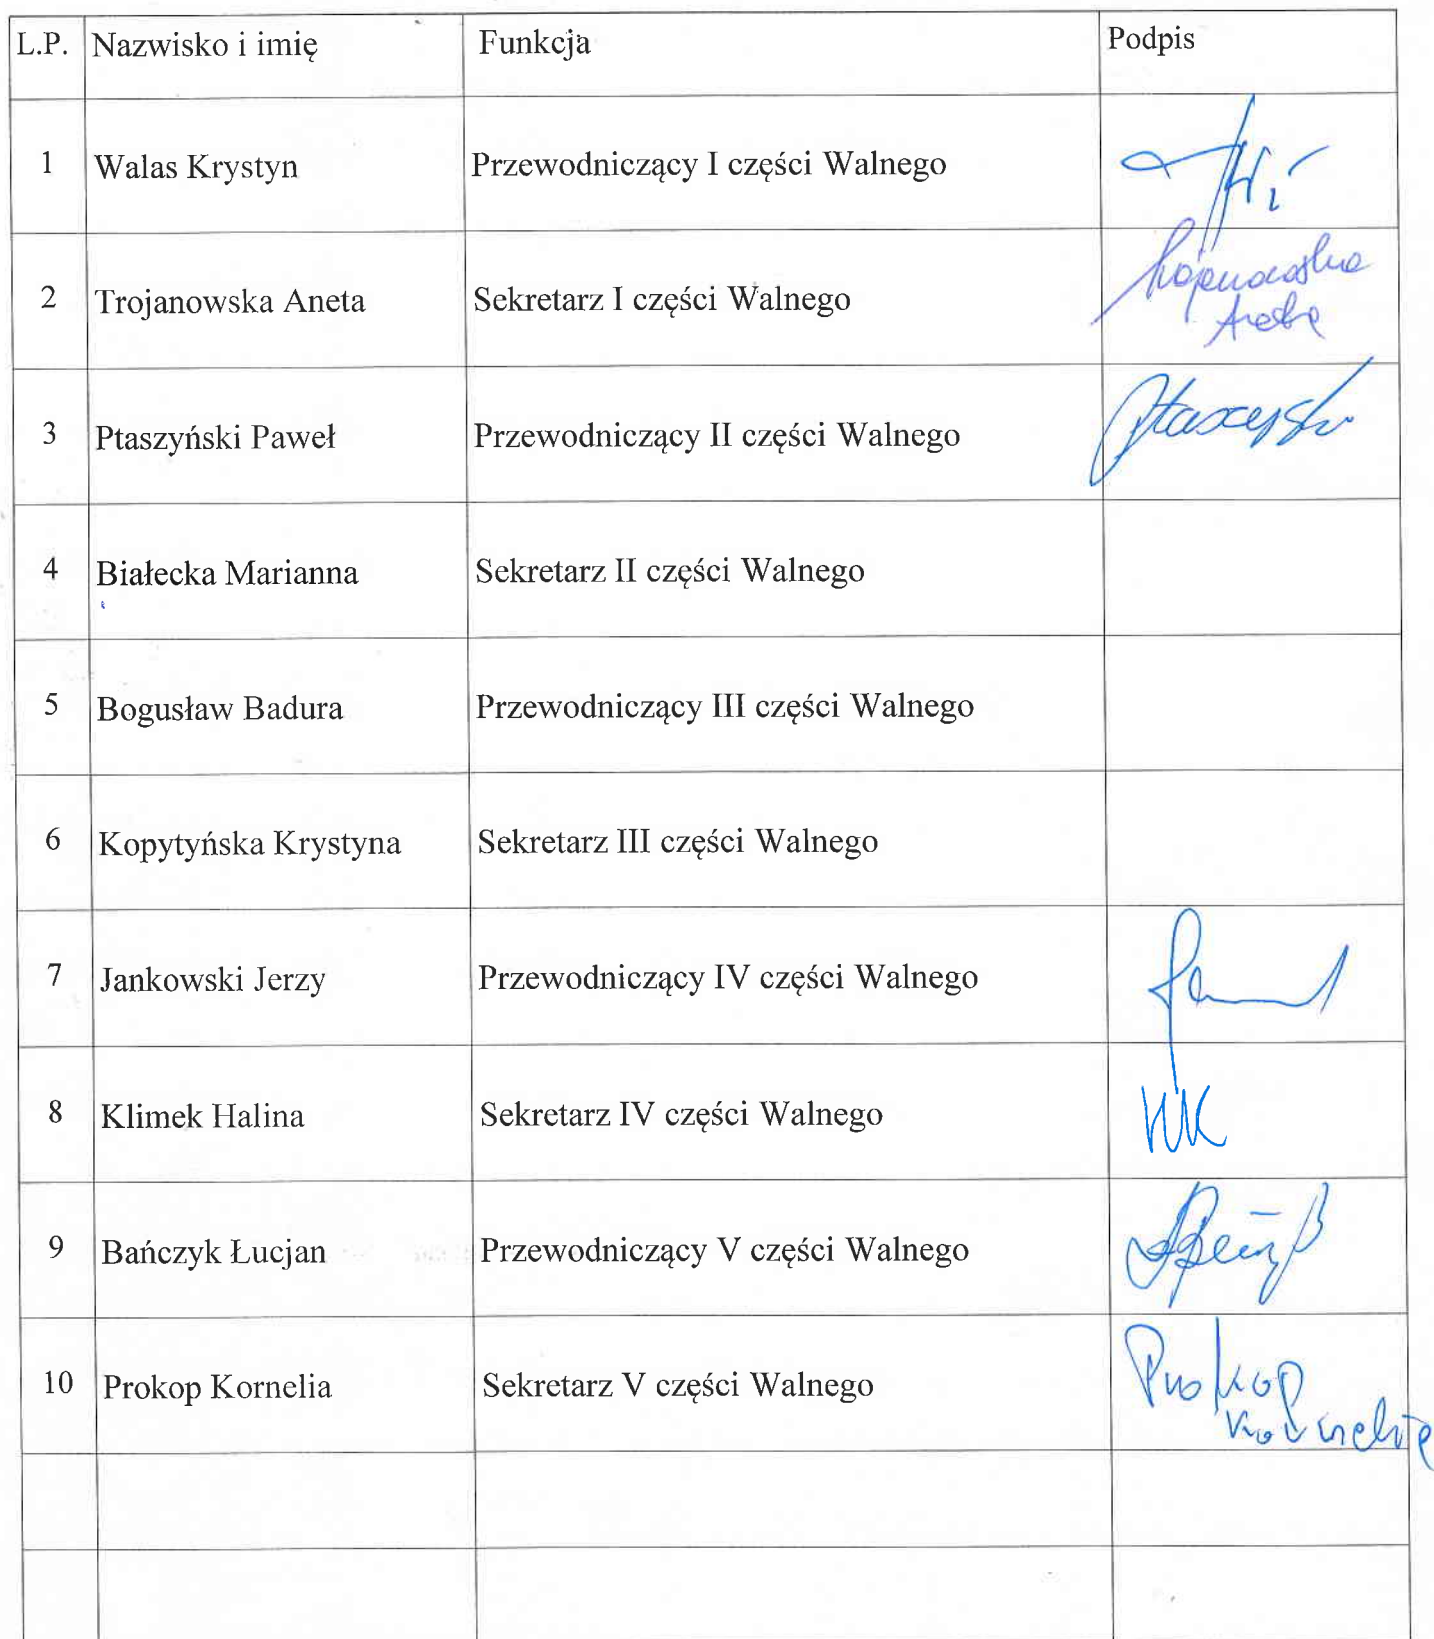 L.P. Nazwisko i imię Funkcja Podpis
1 Walas Krystyn Przewodniczący I części Walnego
2 Trojanowska Aneta Sekretarz I części Walnego Trojanowska
Aneta
3 Ptaszyński Paweł Przewodniczący II części Walnego
4 Białecka Marianna Sekretarz II części Walnego
5 Bogusław Badura Przewodniczący III części Walnego
6 Kopytyńska Krystyna Sekretarz III części Walnego
7 Jankowski Jerzy Przewodniczący IV części Walnego
8 Klimek Halina Sekretarz IV części Walnego HK
9 Bańczyk Łucjan Przewodniczący V części Walnego
10 Prokop Kornelia Sekretarz V części Walnego Prokop
Kornelia